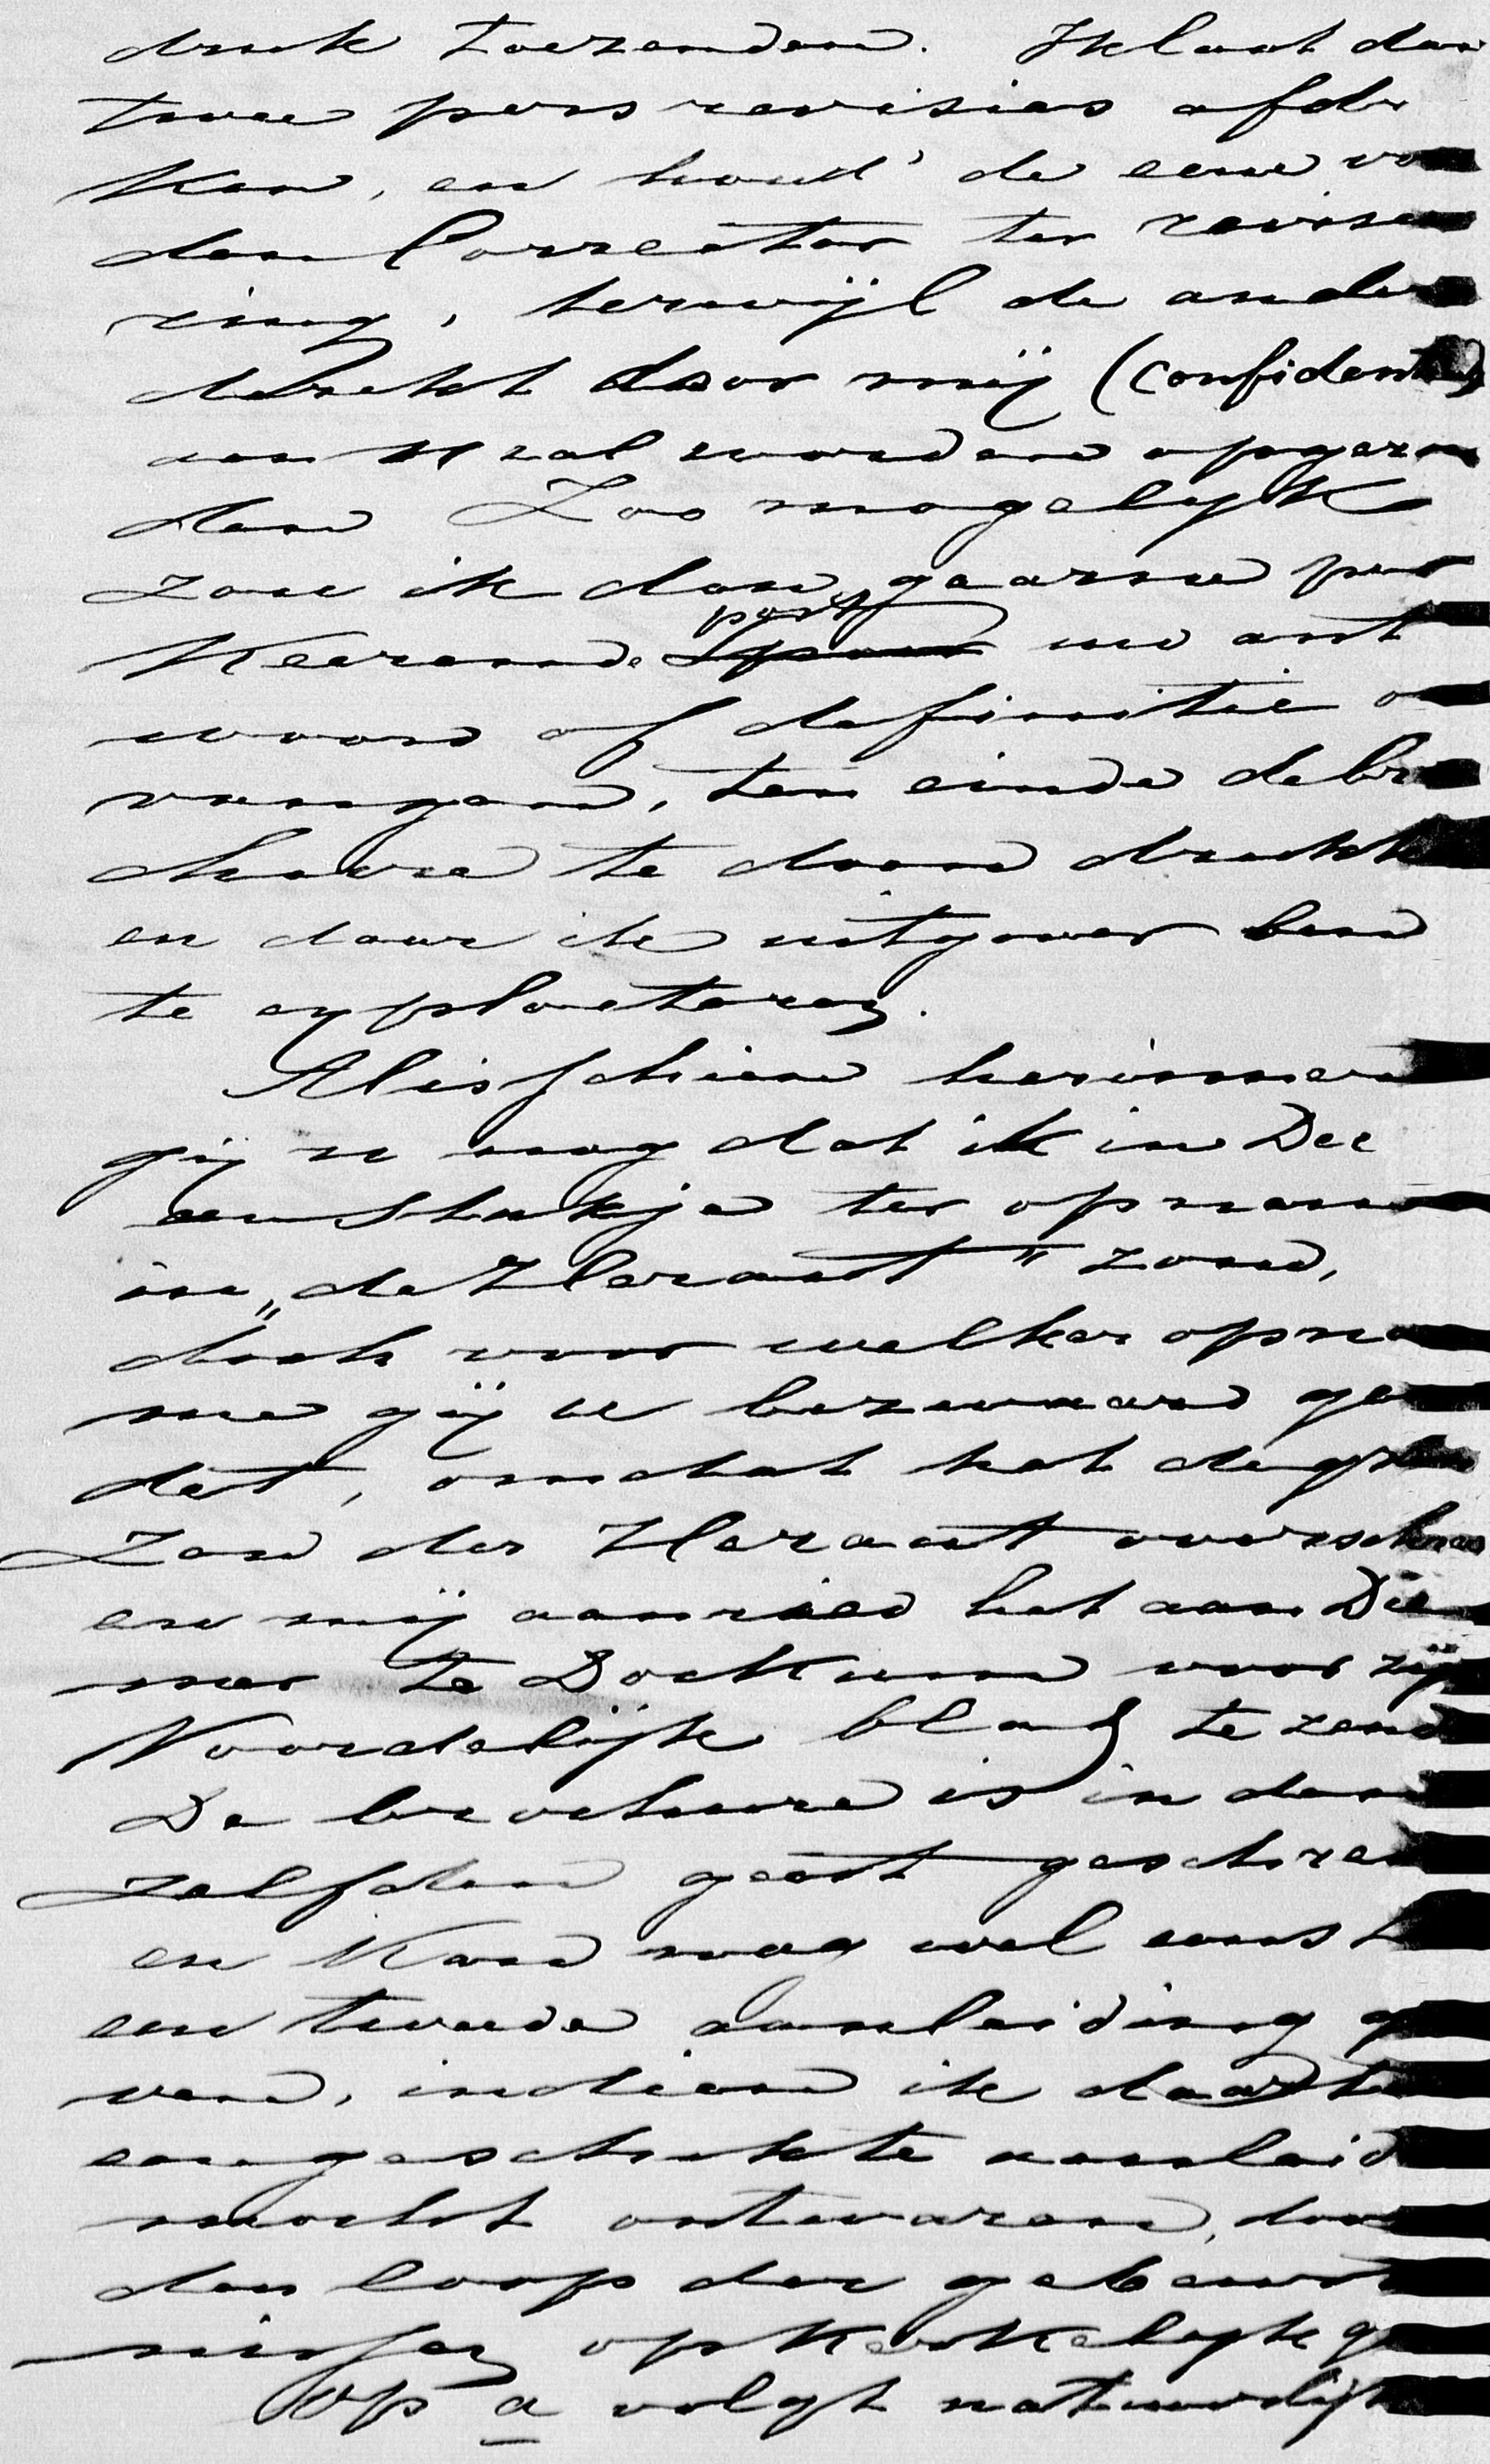 druk toezenden. Ik laat dan
twee pers revisies afdr
ken, en houd' de eene vo
den Corrector ter revisee
ring, terwijl de ander
direkt door mij (confidenti
aan U zal worden opgezon
den Zoo mogelijk
zou ik dan gaarne per
keerende post uw ant
woord of definitie o
vangen, ten einde de br
chure te doen drukk
en daar ik uitgever ben
te exploiteren.
Misschien herinner
gij u nog dat ik in Dec
een stukje ter opname
in „de Heraut" zond,
doch voor welker opna
me gij u bezwaard ge
det, omdat het de gren
zen der Heraut overschree
en mij aanried het aan Die
ner te Dockum voor zijn
Noordelijk blad te zend
De brochure is in den
zelfden geest geschreve
en kan nog wel eens t
een tweede aanleiding g
ven, indien ik daarto
een geschikte aanleid
mocht ontwaren, door
den loop der gebeurt
nissen op kerkelijk ge
Op a volgt natuurlijk